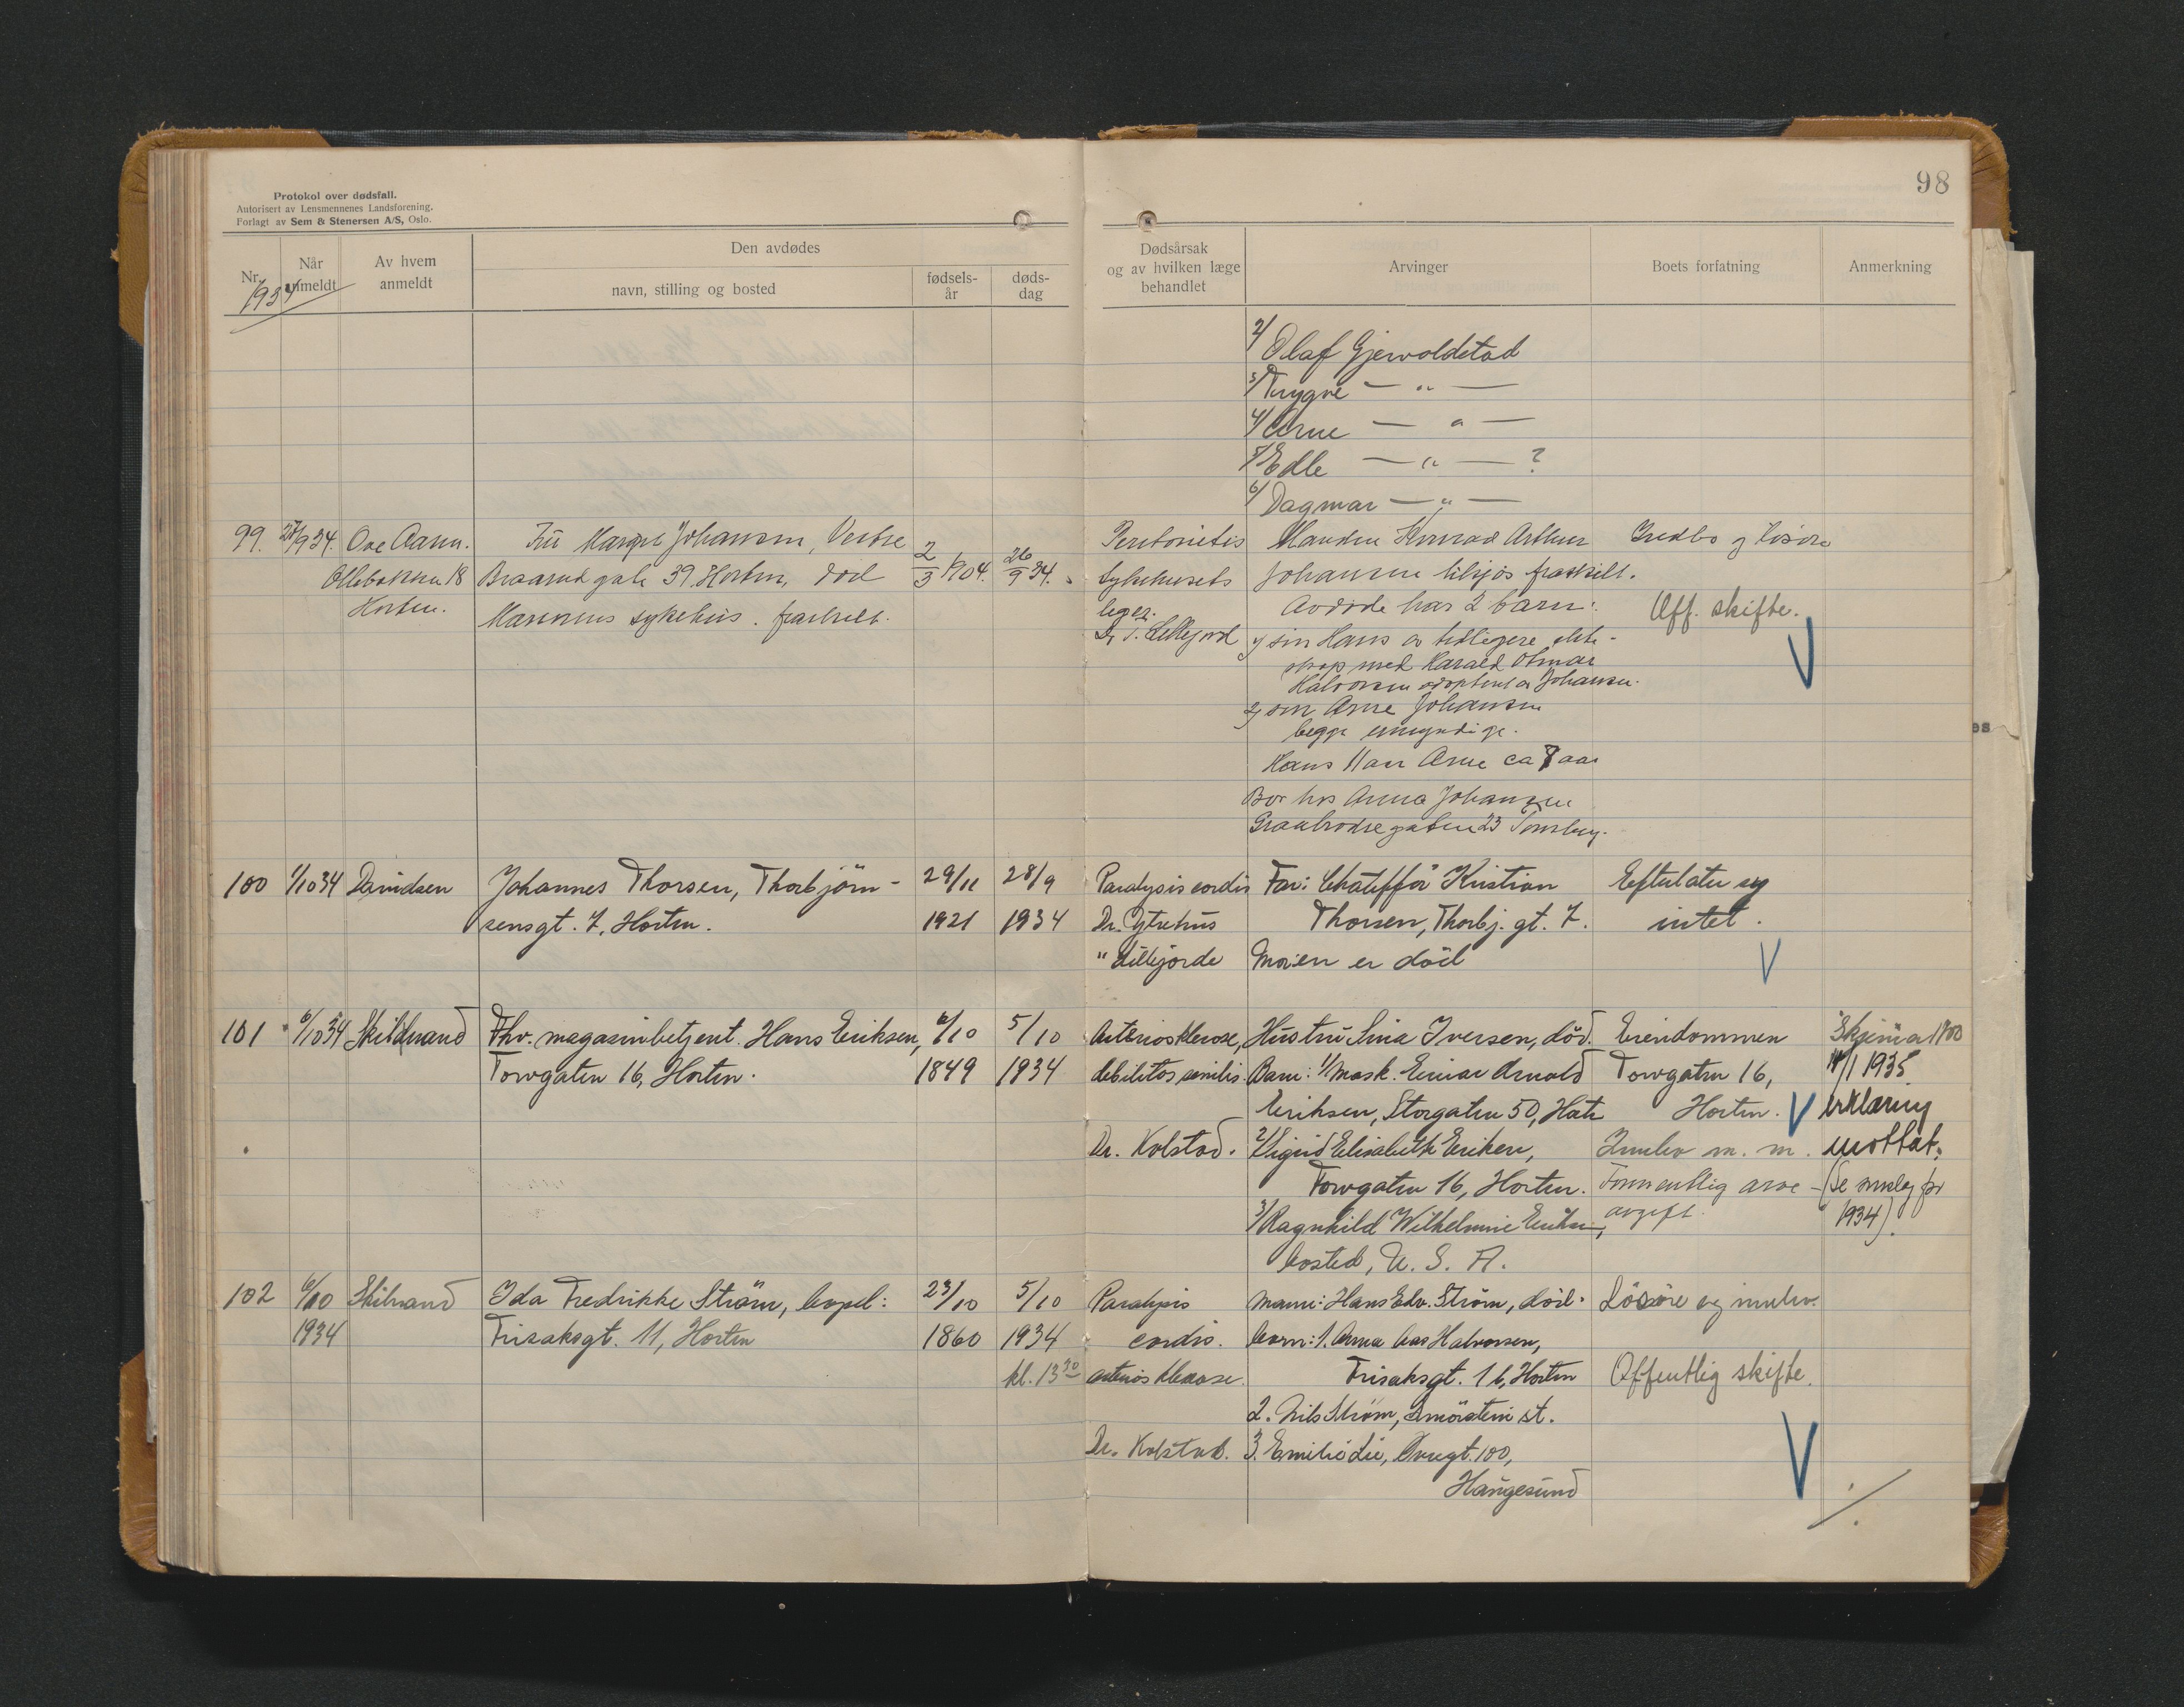 98
Protokol over dødsfall.
Autorisert av Lensmennenes Landsforening.
Forlagt av Sem & Stenersen A/S, Oslo.
Nr.
Når anmeldt
Av hvem anmeldt
Den avdødes
navn, stilling og bosted
fødsels-år
døds-dag
Dødsårsak
og av hvilken læge
behandlet
Arvinger
Boets forfatning
Anmerkning
1934
2/ Olaf Gjervoldstad
3/ Trygve — " —
4/ Arne — " —
5/ Edle — " — ?
6/ Dagmar — " —
99. 27/9 34. Ove Aarm.
18
Horten.
Fru Margit Johansen, Vestre
Braarud gate 39. Horten, död
Marinens sykehus. fraskilt.
2/3 1904.
26/9 34.
Peritonitis
Sykehusets
leger.
Dr T. Lillejord
Manden Konrad Arthur
Johansen tilsjøs fraskilt.
Avdöde har 2 barn:
1) sön Hans av tidligere ekte-
skap med Harald Otmar
Halvorsen adoptert av Johansen.
2) sön Arne Johansen
begge umyndige.
Hans 11 aar Arne ca 7 aar
Bor hos Anna Johansen
Graabrødregaten 23 Tønsberg.
Indbo og lösöre
Off. skifte.
100 1/10 34 Davidsen
Johannes Thorsen, Thorbjörn-
sensgt. 7, Horten.
29/11
1921
28/9
1934
Paralysis cordis
Dr. Ytrehus
" Lillejorde
Far: Chauffför Kristian
Thorsen, Thorbj. gt. 7.
Moren er död
Efterlater sig
intet.
101 6/10 34 Skilbrand
Fhv. magasinbetjent Hans Eriksen,
Towgaten 16, Horten.
6/10
1849
5/10
1934
Arteriosklerose,
debilitas senilis.
Dr. Kolstad.
Hustru Lina Iversen, död.
Barn: 1/ Mask. Einar Arnold
Eriksen, Storgaten 50, Horten
2/ Sigrid Elisabeth Eriksen,
Towgaten 16, Horten.
3/ Ragnhild Wilhelmine Eriksen,
bosted, U. S. A.
Eiendommen
Towgaten 16,
Horten.
Innbo m. m.
Formentlig arve-
avgift.
Skjema 1700
1935.
Erklæring
mottat.
(Se innlegg for
1934).
102 6/10 Skilbrand
1934
Ida Fredrikke Ström, bopel:
Frisaksgt. 11, Horten
23/10
1860
5/10
1934
kl. 13 30
Paralysis
cordis.
arteriosklerose.
Dr. Kolstad.
Mann: Hans Edv. Ström, död.
barn: 1. Anna Halvorsen,
Frisaksgt. 16, Horten
2. Nils Ström, Smörstein st.
3. Emilie Lie, 100,
Haugesund
Lösöre og innbo.
Offentlig skifte.